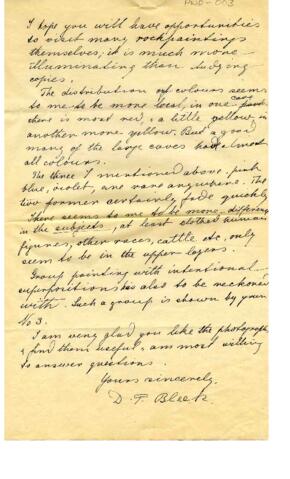 PWD-003
I hope you will have opportunities
to visit many rock paintings
themselves; it is much more
illuminating than studying
copies.
The distribution of colours seems
to me to be more local, in one cave
there is most red, & a little yellow in
another more yellow. But a good
many of the large caves had almost
all colours.
The three I mentioned above, pink
blue, violet, are rare anywhere. The
two former certainly fade quickly
There seems to me to be more difference
in the subjects, at least clothed human
figures, other races, cattle etc, only
seem to be in the upper layers.
Group painting with intentional
superpositions has also to be reckoned
with. Such a group is shown by your
No 3.
I am very glad you like the photographs
& find them useful & am most willing
to answer questions.
Yours sincerely,
D. F. Bleek.